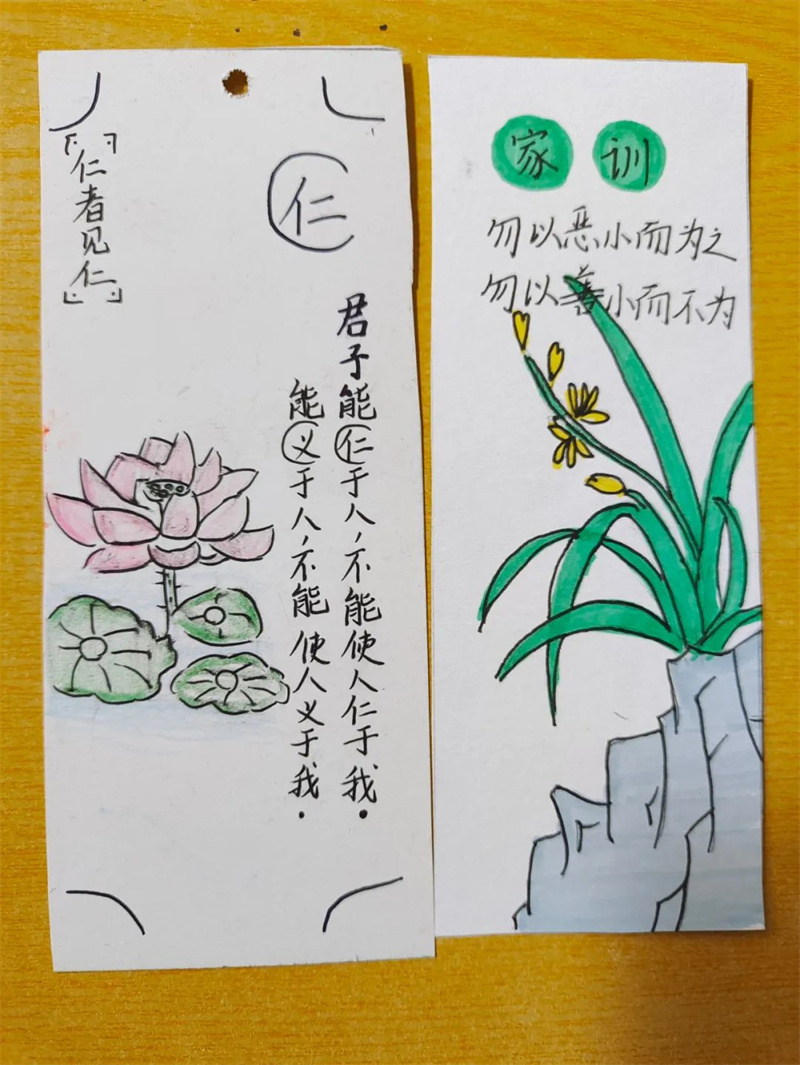 仁
君子能仁于人，不能使人仁于我.
能义于人，不能使人义于我.
「仁者见仁」
家训
勿以恶小而为之
勿以善小而不为